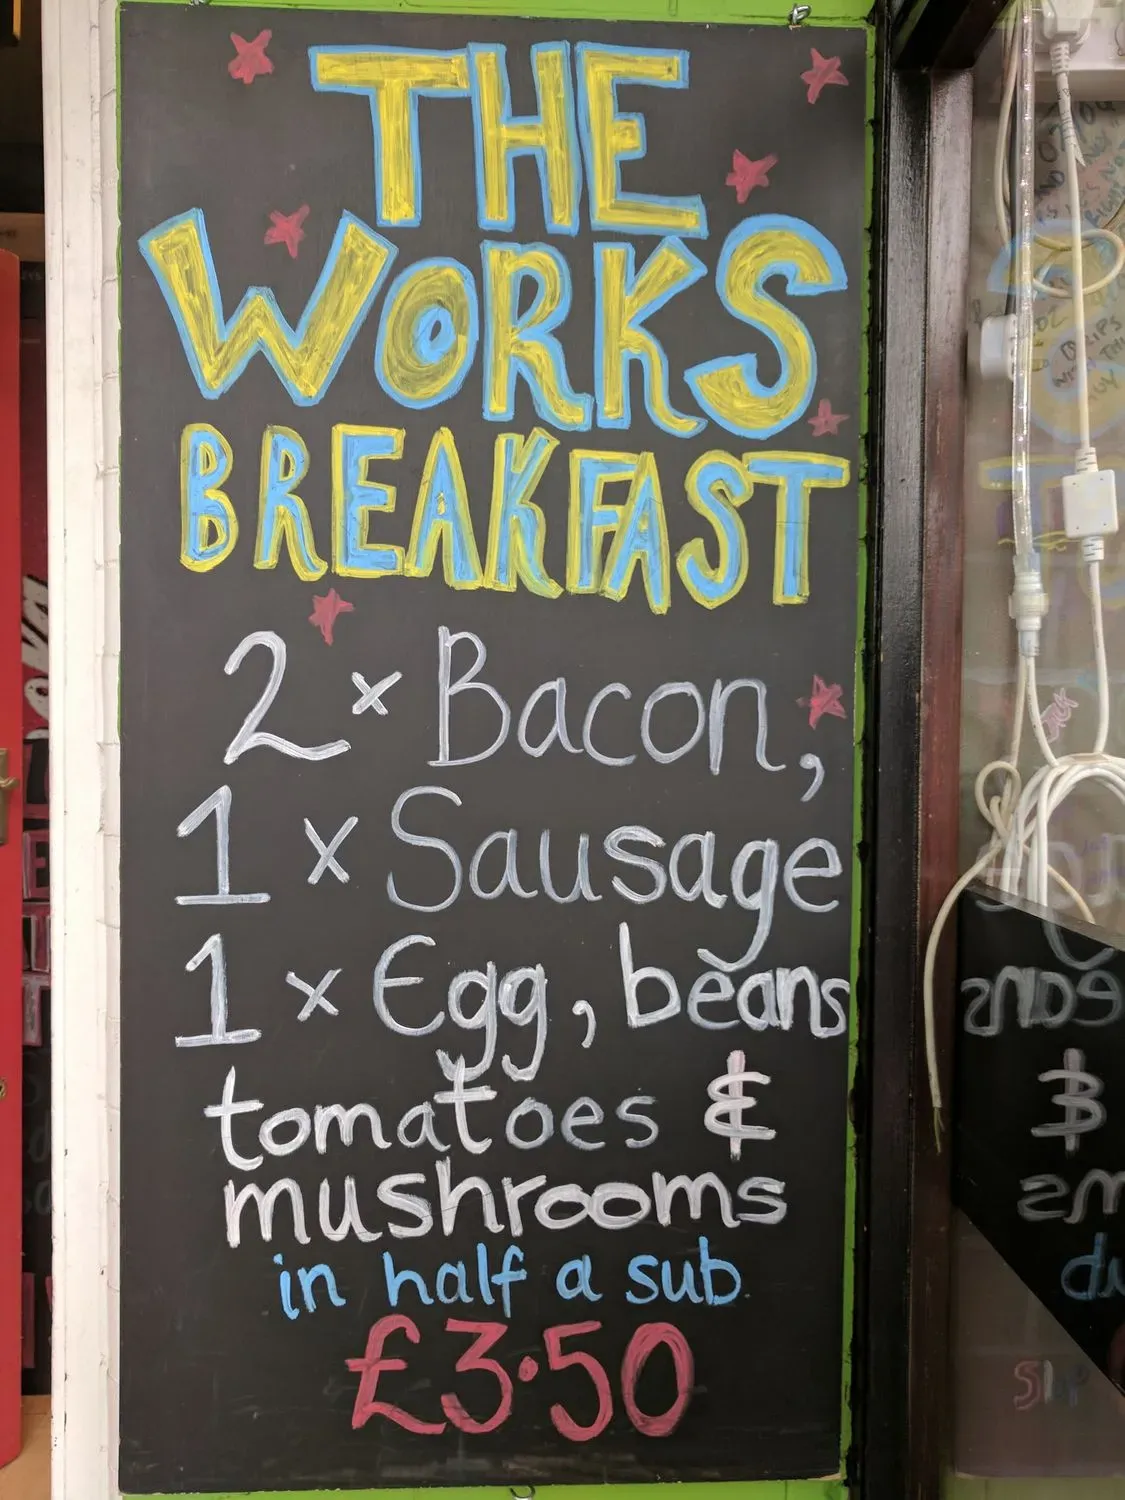 THE
WORKS
BREAKFAST
2 x Bacon,
1 x Sausage
1 x Egg, beans
tomatoes &
mushrooms
in half a sub
£3.50